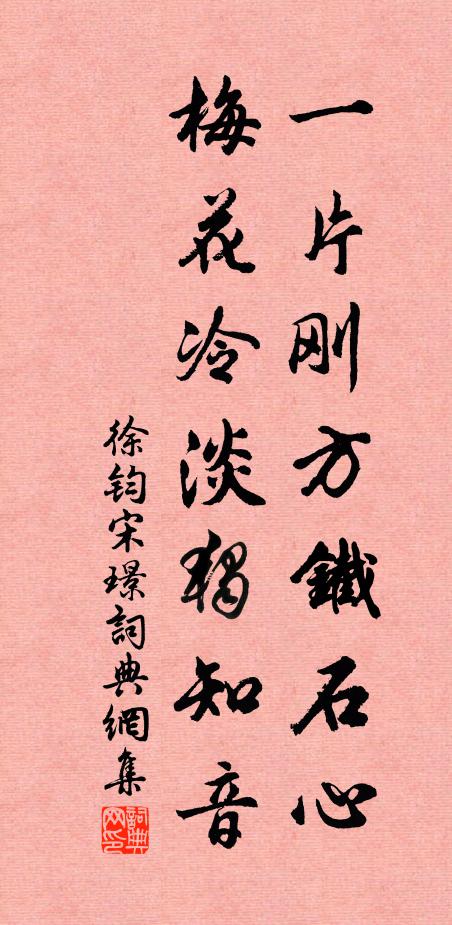 一片刚方鐵石心
梅花冷淡獨知音
徐钧宋璟詞典網集
詞典网印